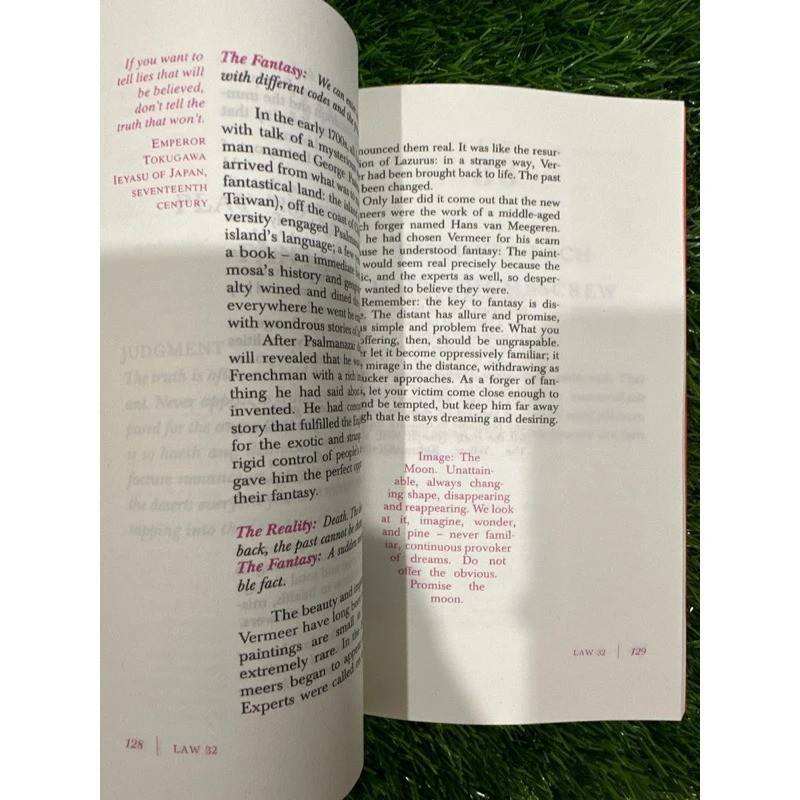 If you want to
tell lies that will
be believed,
don't tell the
truth that won't.
EMPEROR
TOKUGAWA
IEYASU OF JAPAN,
SEVENTEENTH
CENTURY
The Fantasy: We can
with different codes and the
In the early 1700s,
with talk of a mysterious
man named George
arrived from what was
fantastical land: the island
Taiwan), off the coast of
versity engaged Psalmanazar
island's language; a few
a book – an immediate
mosa's history and
alty wined and dined
everywhere he went he
with wondrous stories of
After Psalmanazar
will revealed that he was
Frenchman with a rich
thing he had said about
invented. He had
story that fulfilled the
for the exotic and
rigid control of people's
gave him the perfect
their fantasy.
The Reality: Death. The
back, the past cannot be
The Fantasy: A sudden
ble fact.
The beauty and
Vermeer have long
paintings are small
extremely rare. In the
meers began to appear
Experts were called
128 | LAW 32
nounced them real. It was like the resur-
ion of Lazurus: in a strange way, Ver-
r had been brought back to life. The past
been changed.
Only later did it come out that the new
meers were the work of a middle-aged
ch forger named Hans van Meegeren.
he had chosen Vermeer for his scam
use he understood fantasy: The paint-
would seem real precisely because the
ic, and the experts as well, so desper-
wanted to believe they were.
Remember: the key to fantasy is dis-
e. The distant has allure and promise,
as simple and problem free. What you
offering, then, should be ungraspable.
er let it become oppressively familiar; it
mirage in the distance, withdrawing as
ucker approaches. As a forger of fan-
, let your victim come close enough to
nd be tempted, but keep him far away
gh that he stays dreaming and desiring.
Image: The
Moon. Unattain-
able, always chang-
ing shape, disappearing
and reappearing. We look
at it, imagine, wonder,
and pine – never famil-
iar, continuous provoker
of dreams. Do not
offer the obvious.
Promise the
moon.
LAW 32 | 129